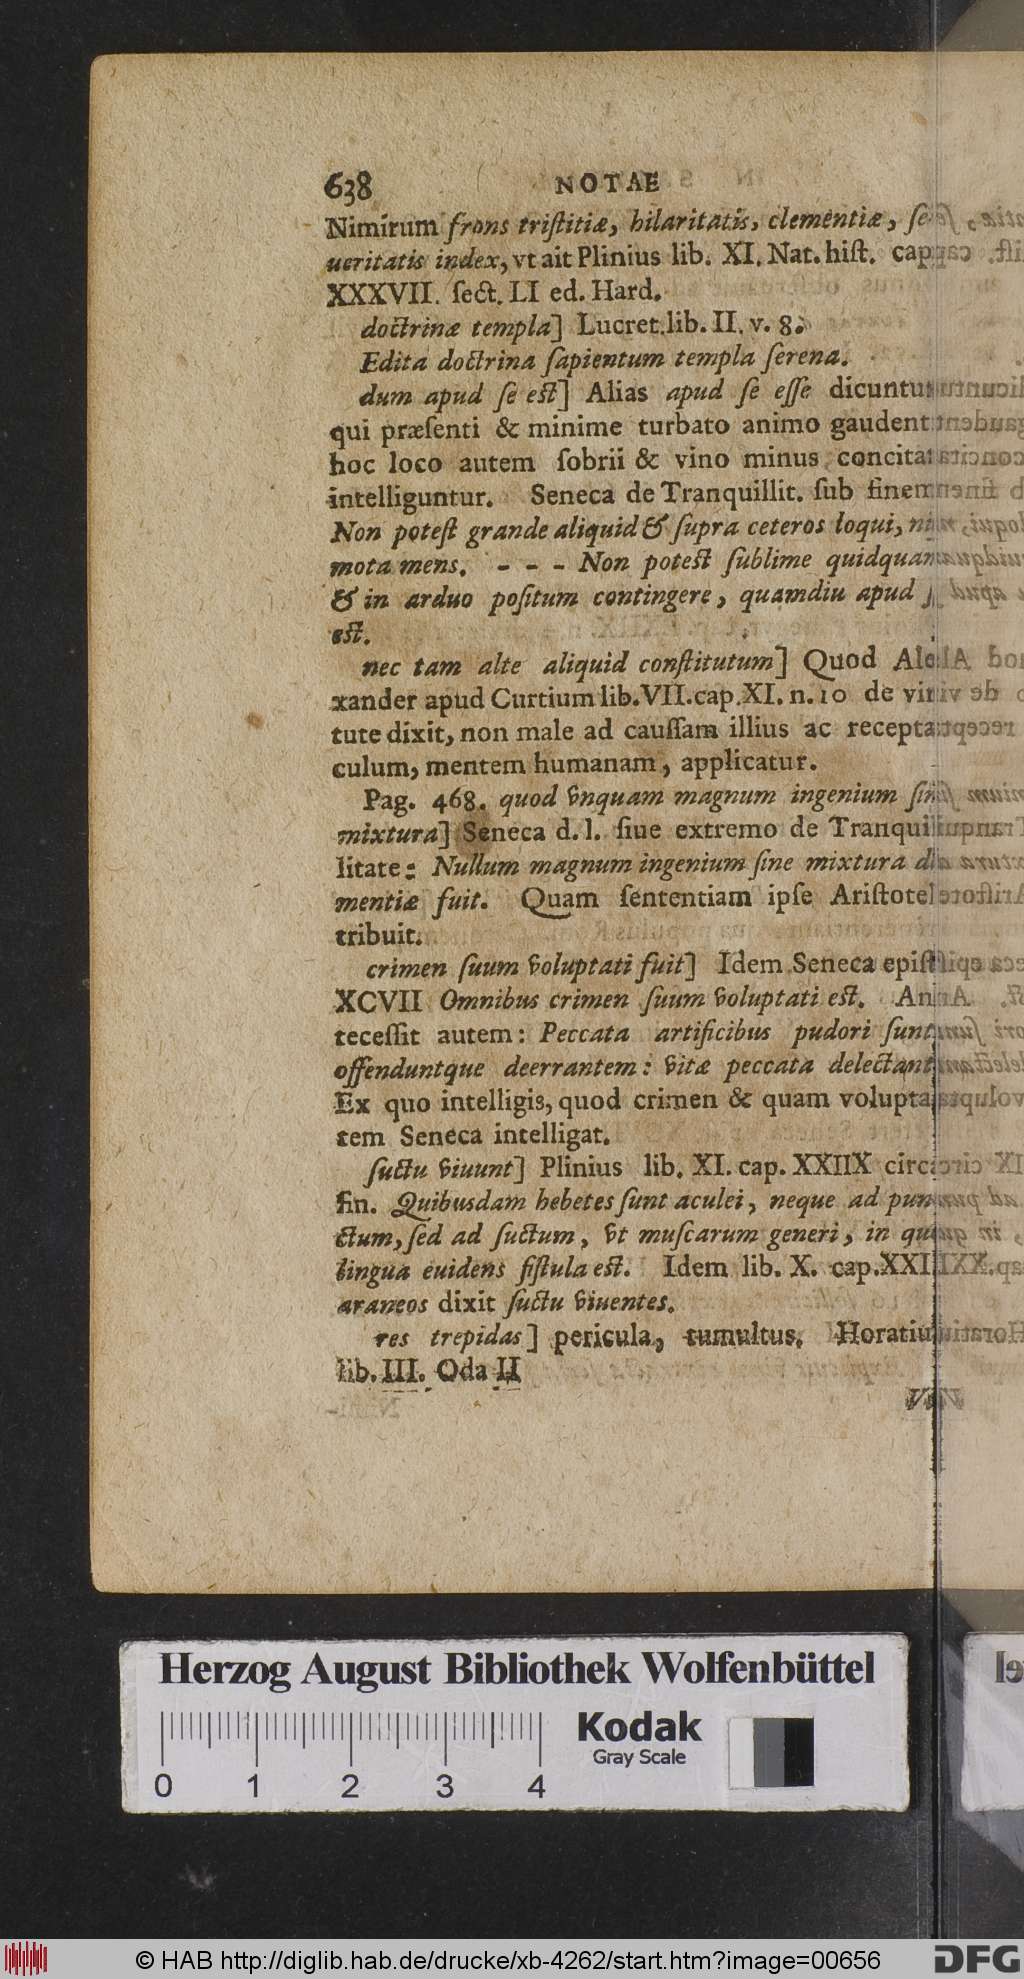 638 NOTAE
Nimirum frons triſtitiæ, hilaritatis, clementiæ, ſe
ueritatis index, vt ait Plinius lib. XI. Nat. hiſt. cap
XXXVII. ſect. LI ed. Hard.
doctrinæ templa] Lucret. lib. II. v. 8.
Edita doctrina ſapientum templa ſerena.
dum apud ſe eſt] Alias apud ſe eſſe dicuntu
qui præſenti & minime turbato animo gaudent
hoc loco autem ſobrii & vino minus concita
intelliguntur. Seneca de Tranquillit. ſub finem
Non poteſt grande aliquid & ſupra ceteros loqui, niſi
mota mens. - - - Non poteſt ſublime quidquam
& in arduo poſitum contingere, quamdiu apud ſ
eſt.
nec tam alte aliquid conſtitutum] Quod Ale
xander apud Curtium lib. VII. cap. XI. n. 10 de vir
tute dixit, non male ad cauſſam illius ac recepta
culum, mentem humanam, applicatur.
Pag. 468. quod vnquam magnum ingenium ſin
mixtura] Seneca d. l. ſiue extremo de Tranqui
litate: Nullum magnum ingenium ſine mixtura d
mentiæ fuit. Quam ſententiam ipſe Ariſtotel
tribuit.
crimen ſuum voluptati fuit] Idem Seneca epiſt
XCVII Omnibus crimen ſuum voluptati eſt. An
teceſſit autem: Peccata artificibus pudori ſunt
offenduntque deerrantem: vitæ peccata delectant
Ex quo intelligis, quod crimen & quam volupta
tem Seneca intelligat.
ſuctu viuunt] Plinius lib. XI. cap. XXIIX circ
fin. Quibusdam hebetes ſunt aculei, neque ad pun
ctum, ſed ad ſuctum, vt muſcarum generi, in qu
lingua euidens fiſtula eſt. Idem lib. X. cap. XXII
araneos dixit ſuctu viuentes.
res trepidas] pericula, tumultus. Horatiu
lib. III. Oda II
Herzog August Bibliothek Wolfenbüttel
Kodak
Gray Scale
0 1 2 3 4
© HAB http://diglib.hab.de/drucke/xb-4262/start.htm?image=00656
DFG